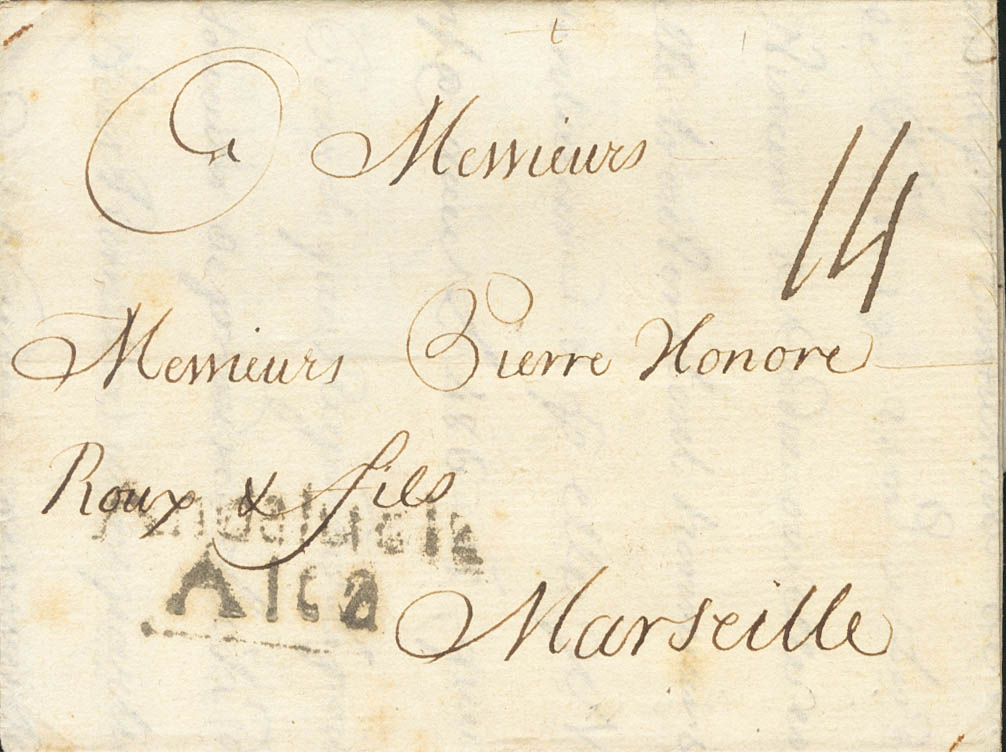 A Messieurs
14
Messieurs Pierre Honoré
Roux & fils
Andalucia
Alta
Marseille